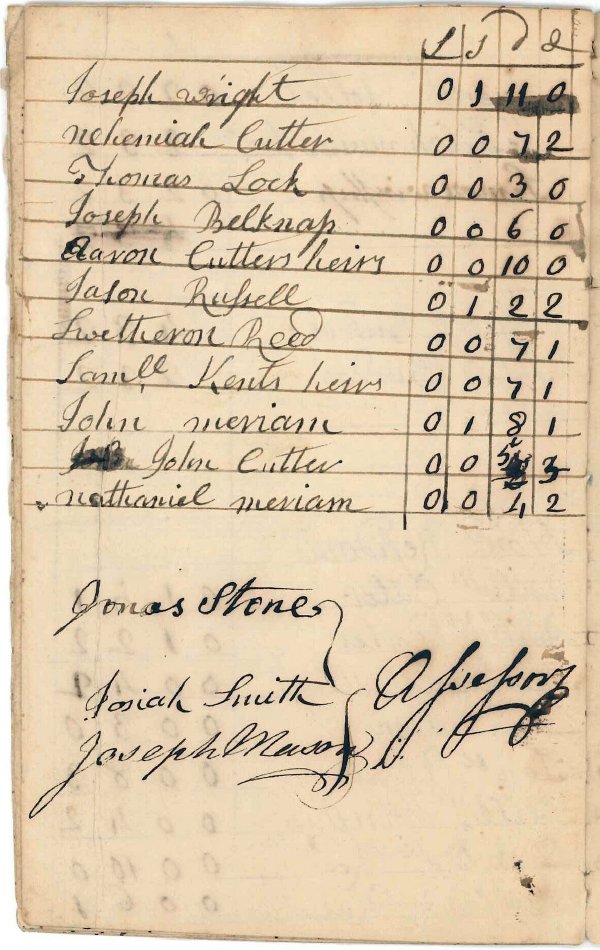 L S D q
Joseph wright 0 1 11 0
nehemiah Cutter 0 0 7 2
Thomas Lock 0 0 3 0
Joseph Belknap 0 0 6 0
Aaron Cutters heirs 0 0 10 0
Jason Russell 0 1 2 2
Swetheron Reed 0 0 7 1
Samll Kents heirs 0 0 7 1
John meriam 0 1 8 1
John Cutter 0 0 5 3
nathaniel meriam 0 0 4 2
Jonas Stone
Josiah Smith Assessors
Joseph Mason